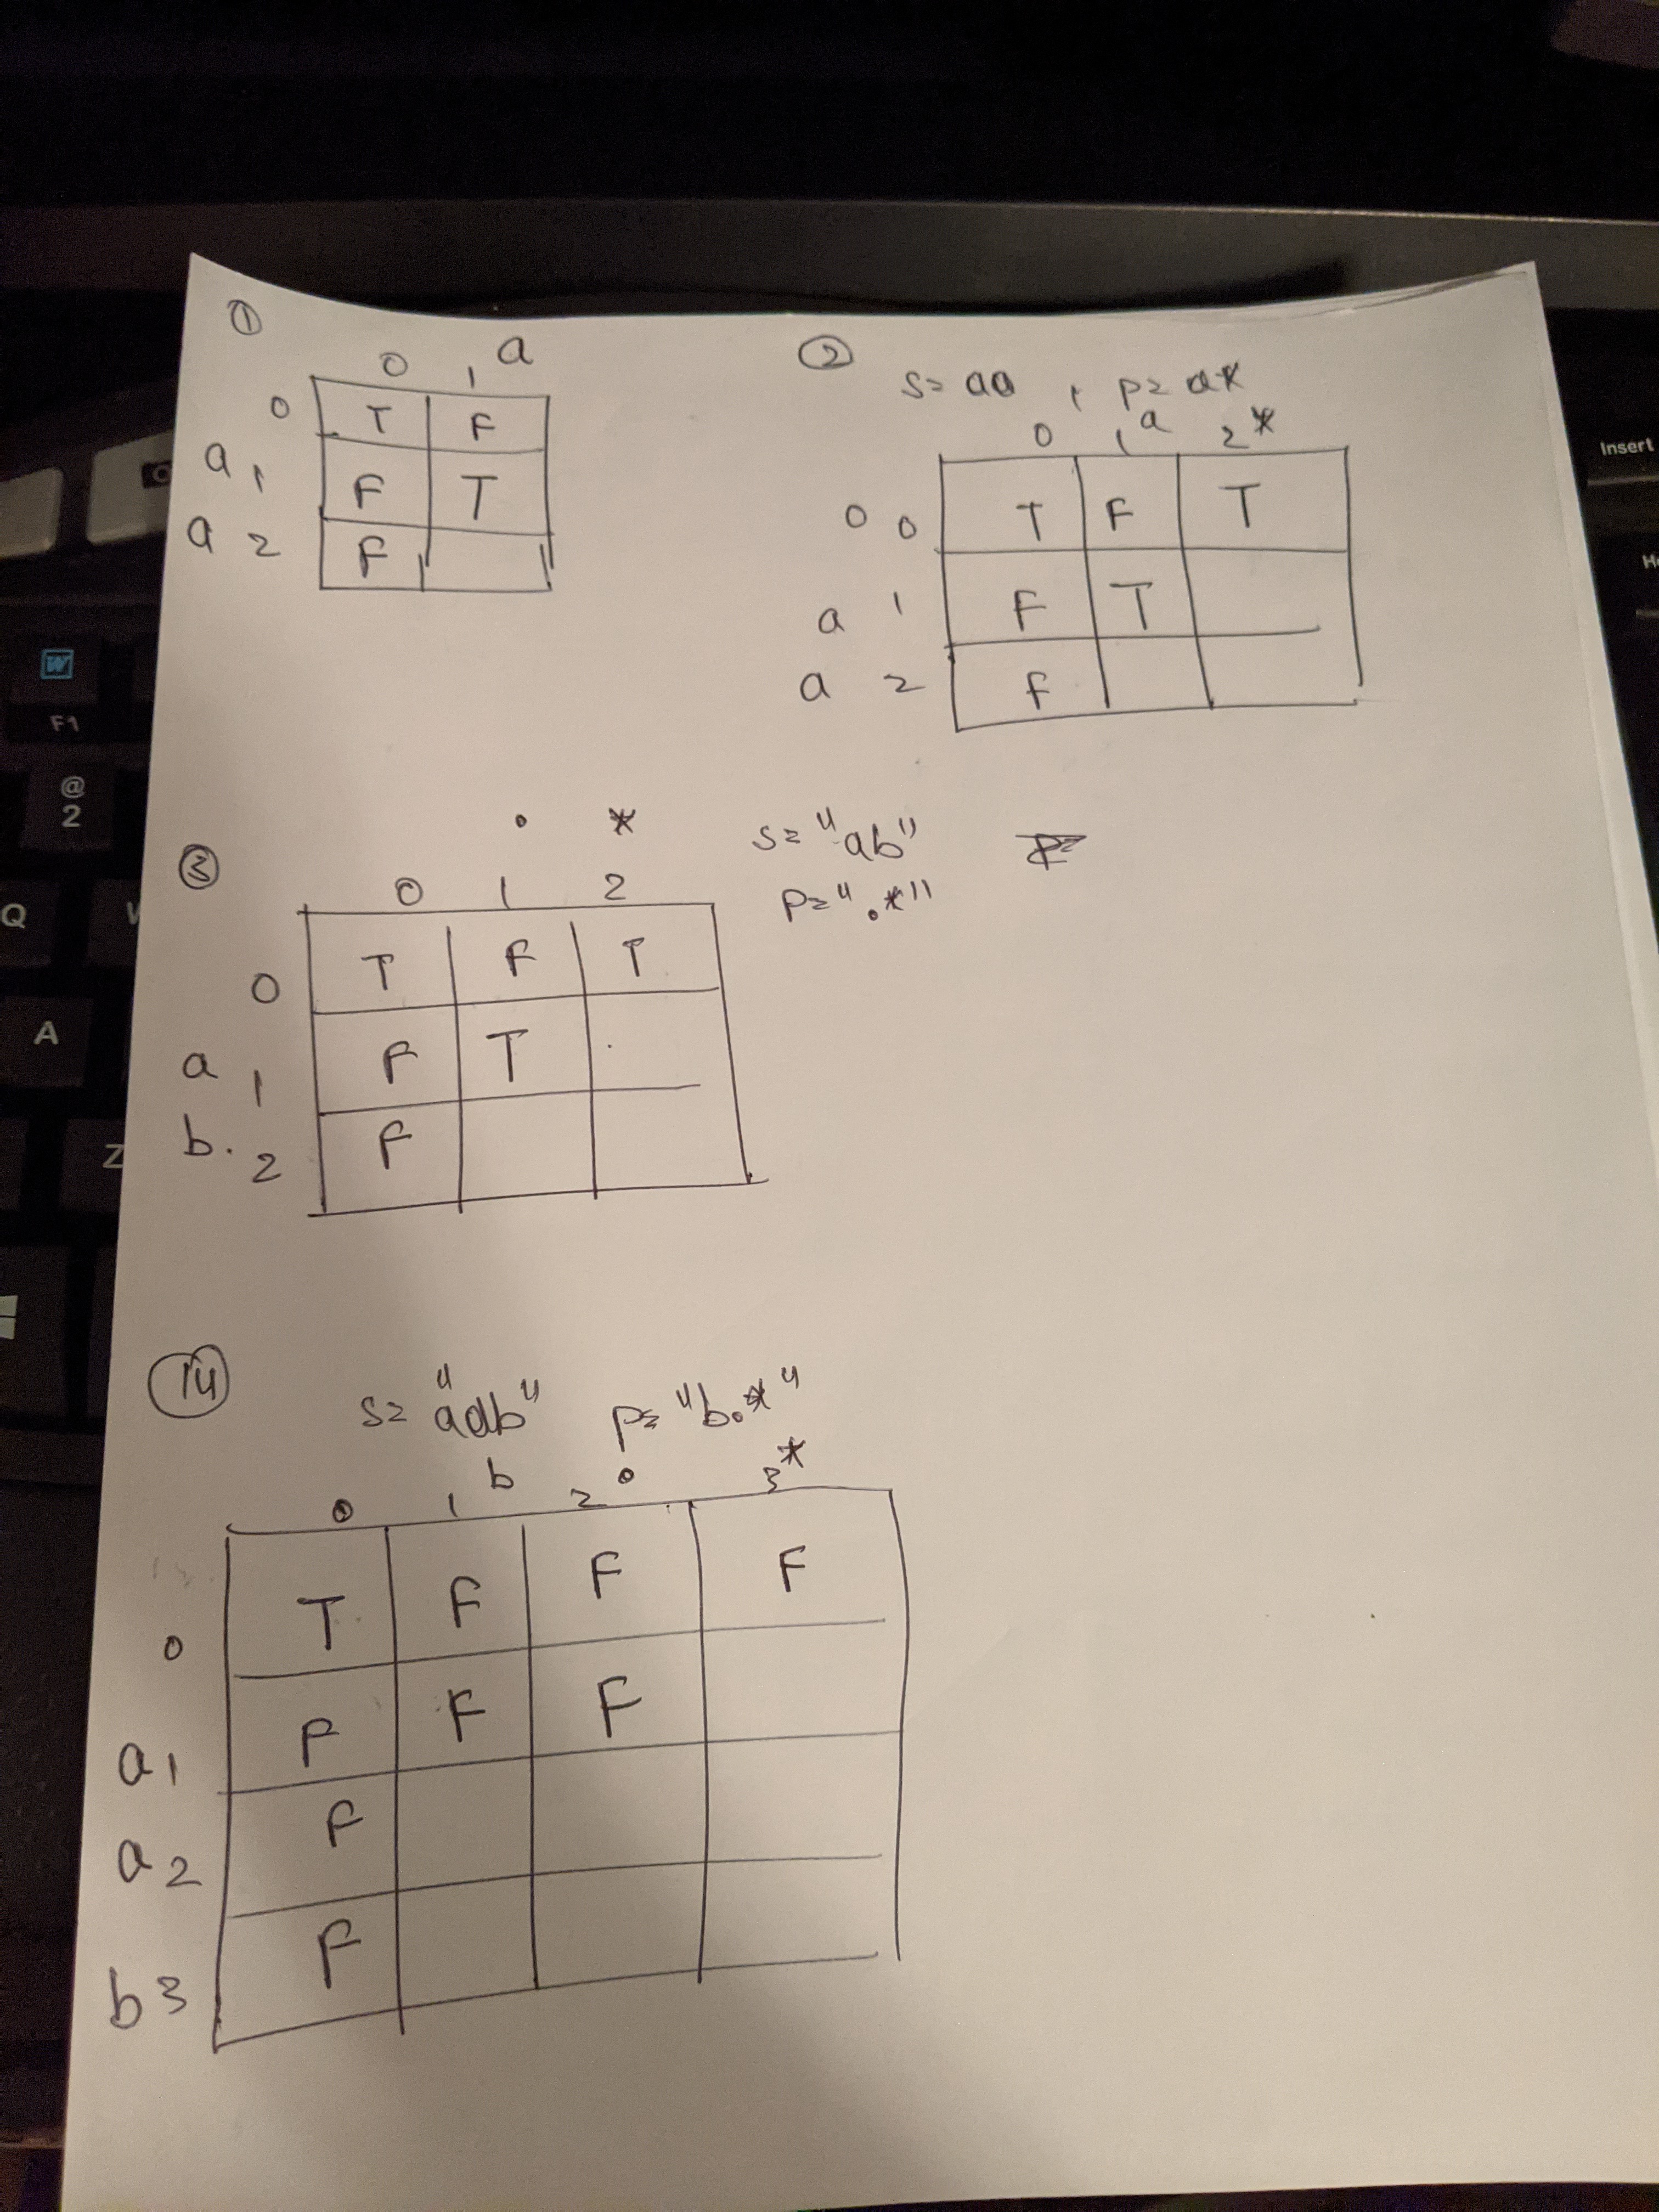 ①
0 1 a
0 T F
a 1 F T
a 2 F
②
s= aa , p= a*
0 1 a 2 *
0 0 T F T
a 1 F T
a 2 F
③
. *
0 1 2
s= "ab"
p= ".*"
0 T F T
a 1 F T
b. 2 F
14
s= "adb" p= "b.*"
0 1 b 2 . 3 *
0 T F F F
a 1 F F F
a 2 F
b 3 F
Insert
W
F1
@
2
Q
A
Z